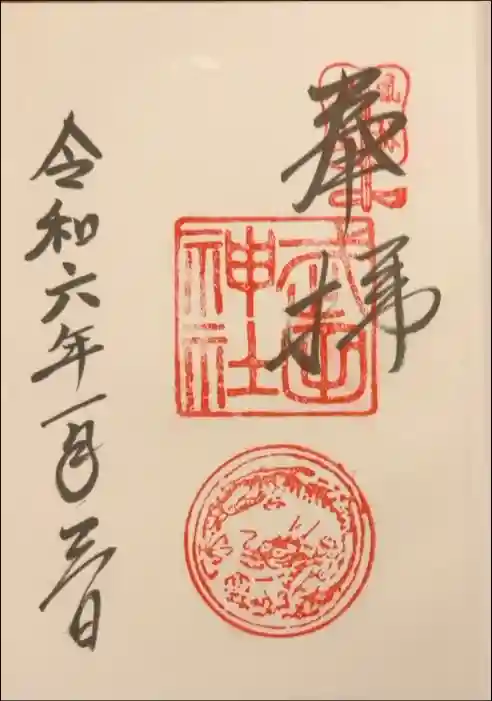 奉拝
武田
神社
令和六年一月三日